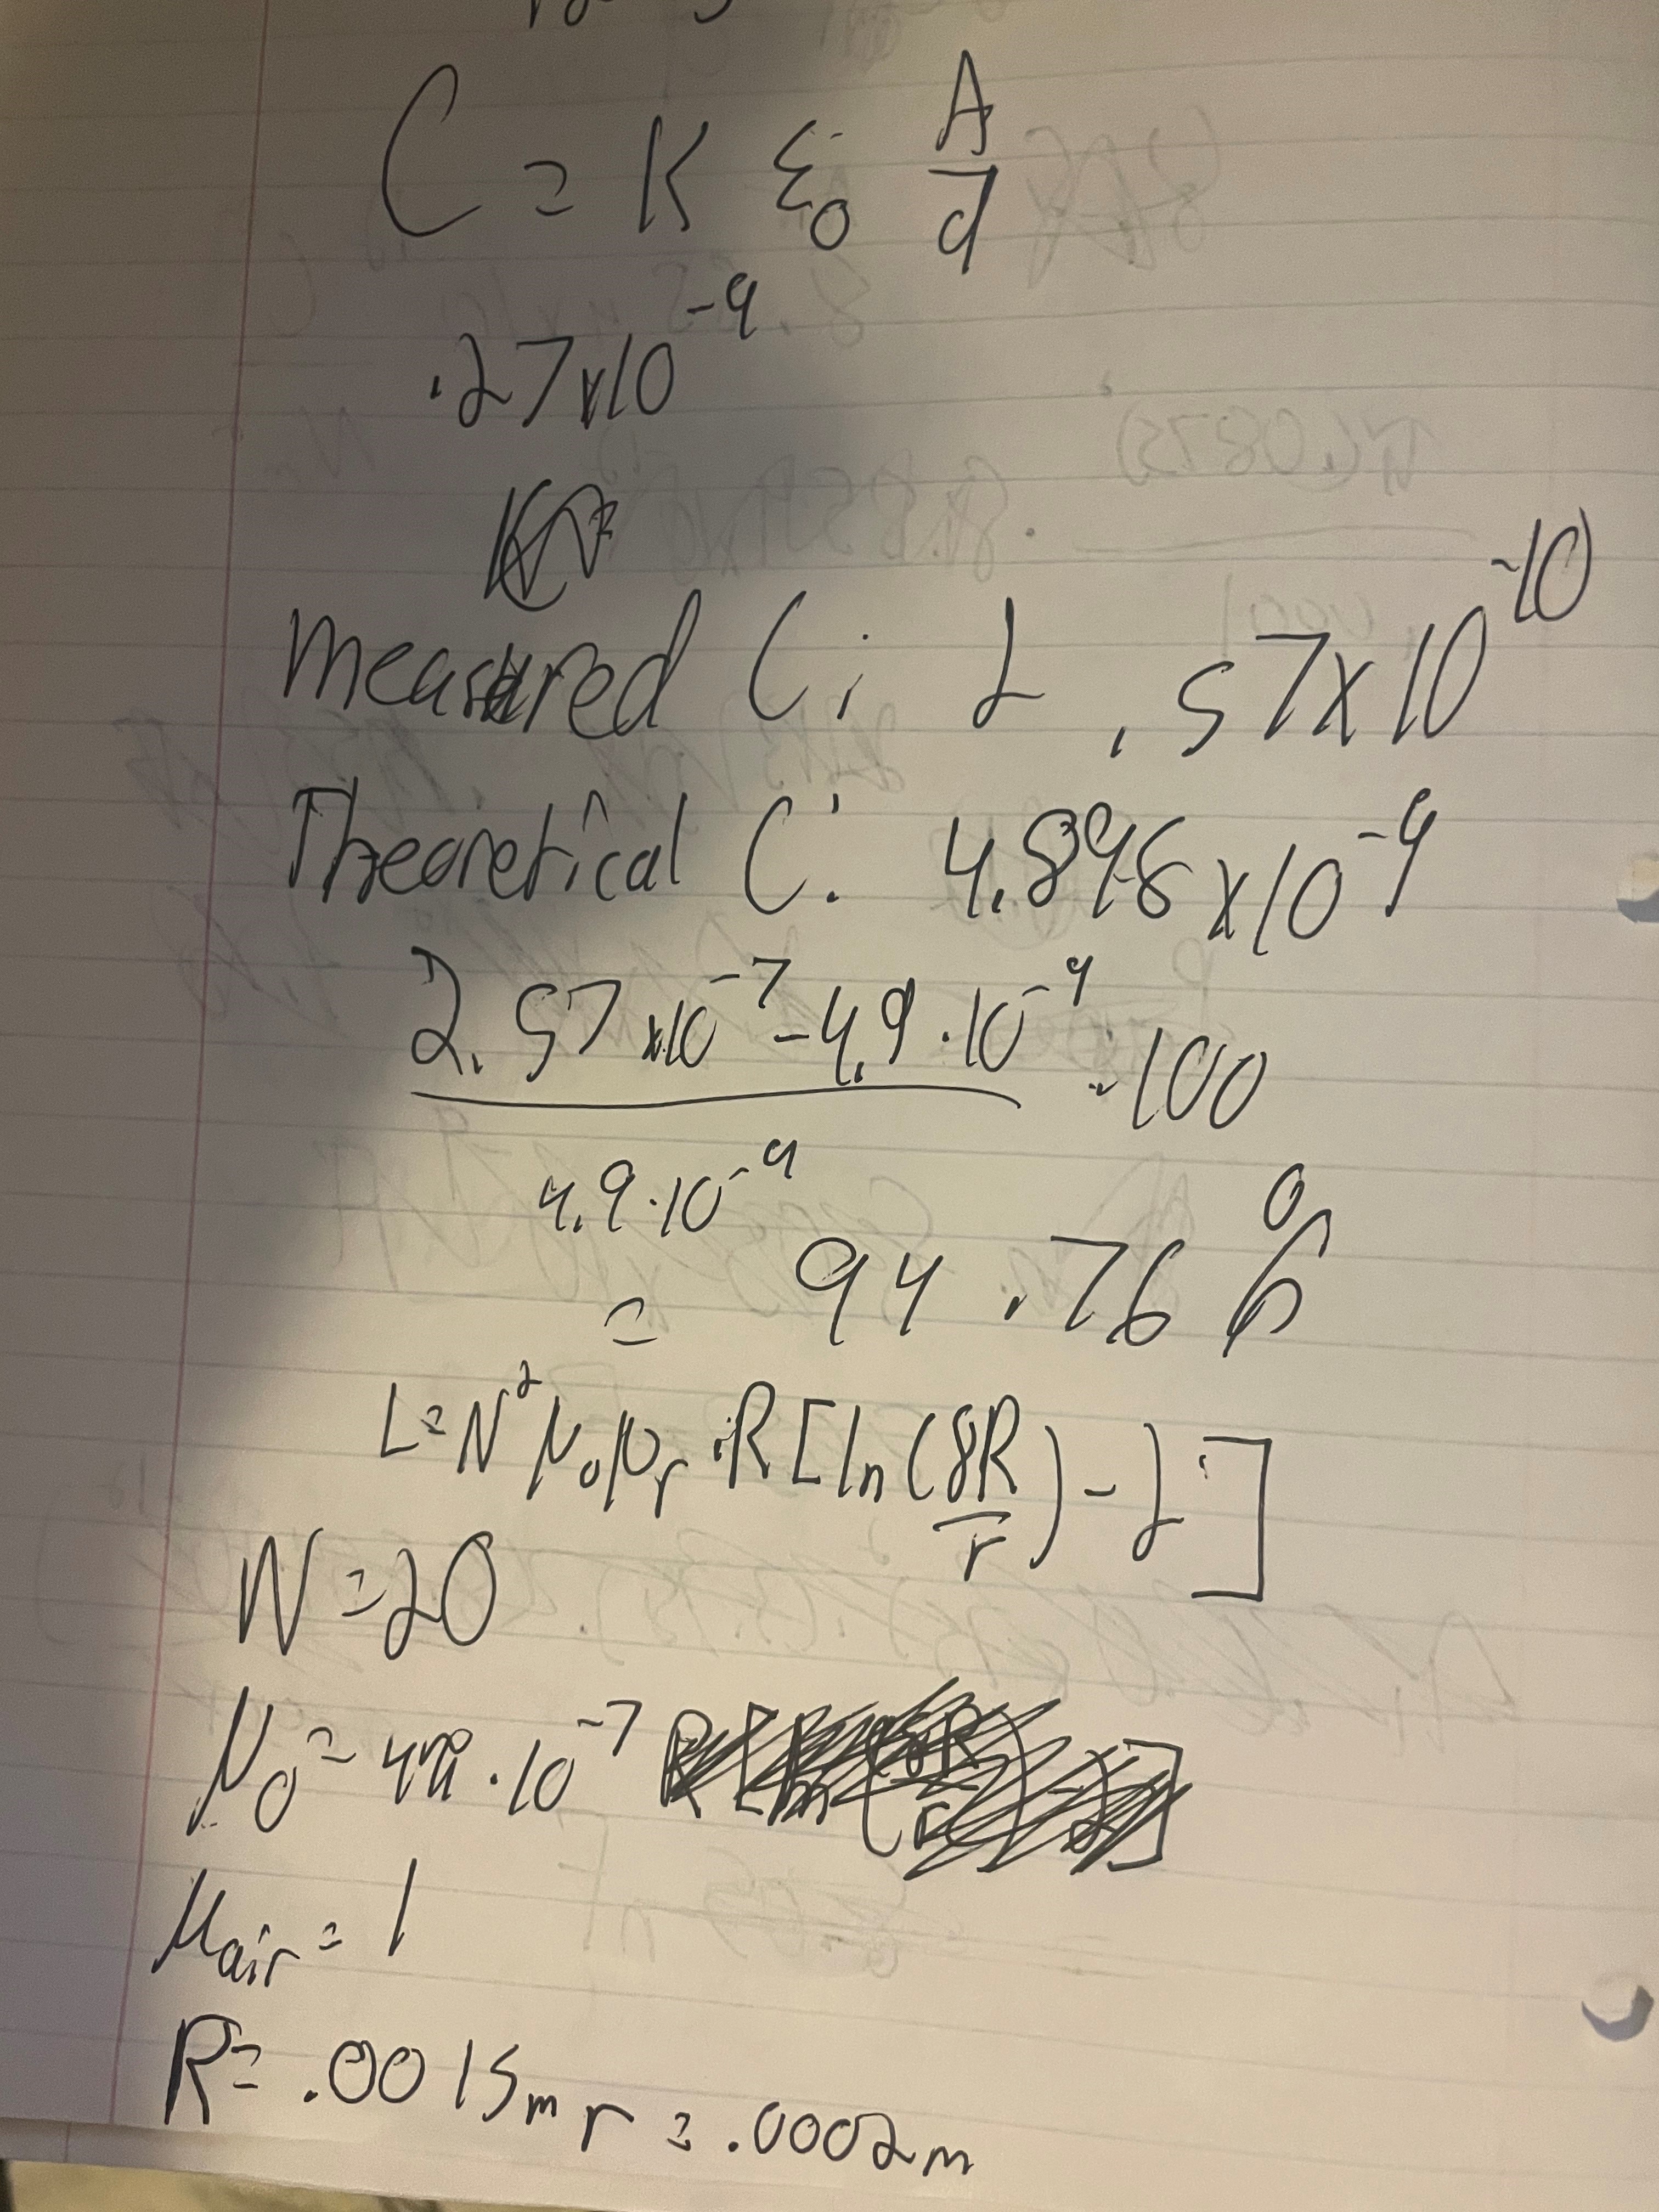 C = K ε₀ A/d
.27x10⁻⁹
Measured C: 2.57x10⁻¹⁰
Theoretical C: 4.898x10⁻⁹
(2.57x10⁻⁷ - 4.9·10⁻⁹)/(4.9·10⁻⁹) ·100
= 94.76%
L=N²μ₀μᵣ·R[ln(8R/r)-2]
N=20
μ₀=4π·10⁻⁷
μair=1
R=.0015m r=.0002m